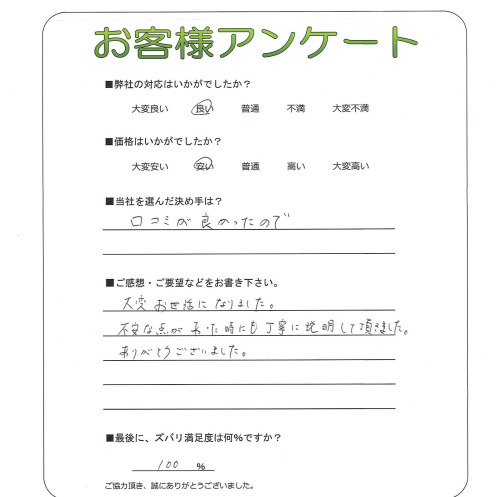 お客様アンケート
■弊社の対応はいかがでしたか？
大変良い 良い 普通 不満 大変不満
■価格はいかがでしたか？
大変安い 安い 普通 高い 大変高い
■当社を選んだ決め手は？
口コミが良かったので
■ご感想・ご要望などをお書き下さい。
大変お世話になりました。
不安な点があった時にも丁寧に説明して頂きました。
ありがとうございました。
■最後に、ズバリ満足度は何％ですか？
100 ％
ご協力頂き、誠にありがとうございました。